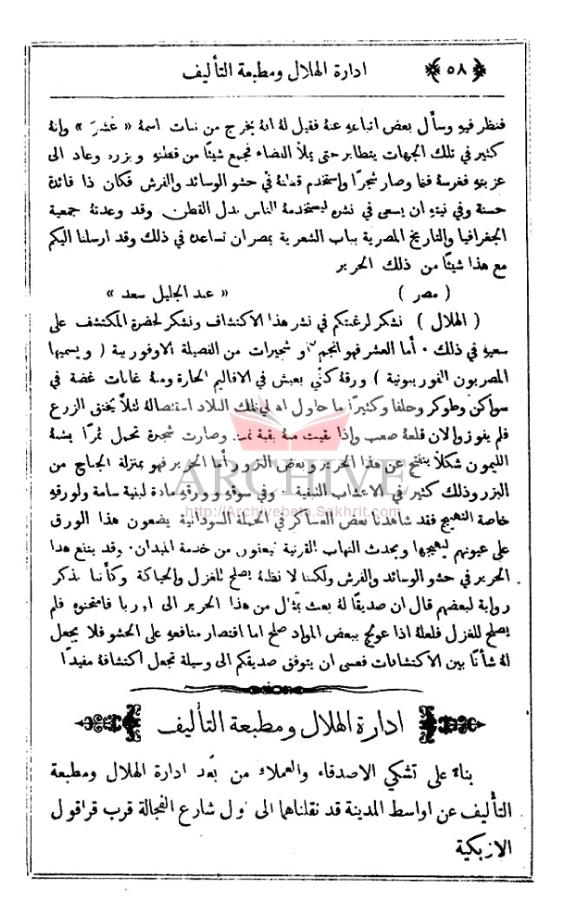 ﴿ ٥٨ ﴾ ادارة الهلال ومطبعة التأليف
فنظر فيهِ وسأل بعض اتباعهِ عنهُ فقيل لهُ انهُ يخرج من نبات اسمهُ « عُشَر » وانهُ
كثير في تلك الجهات يتطاير حتى يملأ الفضاء فجمع شيئًا من قطنهِ وبزره وعاد الى
عزبتهِ فغرسهُ فنما وصار شجرًا واستخدم قطنهُ في حشو الوسائد والفرش فكان ذا فائدة
حسنة وفي نيتهِ ان يسعى في نشره ليستخدمهُ الناس بدل القطن وقد وعدتهُ جمعية
الجغرافيا والتاريخ المصرية بباب الشعرية بمصر ان تساعده في ذلك وقد ارسلنا اليكم
مع هذا شيئًا من ذلك الحرير
( مصر ) « عبد الجليل سعد »
( الهلال ) نشكر لرغبتكم في نشر هذا الاكتشاف ونشكر لحضرة المكتشف على
سعيهِ في ذلك . أما العشر فهو انجم او شجيرات من الفصيلة الاوفوربية ( ويسميها
المصريون الفوربيونية ) ورقهُ كبير يعيش في الاقاليم الحارة ومنهُ غابات غضة في
سواكن وطوكر وحلفا وكثيرًا ما حاول اهالي تلك البلاد استئصالهُ لئلاَّ يخنق الزرع
فلم يفوزوا لان قلعهُ صعب واذا بقيت منهُ بقية نمت وصارت شجرة تحمل ثمرًا يشبهُ
الليمون شكلاً ينفتح عن هذا الحرير وبعض البزور أما الحرير فهو بمنزلة الجناح من
البزر وذلك كثير في الاعشاب وفي سوقهِ وورقهِ مادة لبنية سامة ولورقهِ
خاصة التهييج فقد شاهدنا بعض العساكر في الحملة السودانية يضعون هذا الورق
على عيونهم ليهيجها ويحدث التهاب القرنية فيعفون من خدمة الميدان . وقد ينفع هذا
الحرير في حشو الوسائد والفرش ولكننا لا نظنهُ يصلح للغزل والحياكة وكأننا نذكر
رواية لبعضهم قال ان صديقًا لهُ بعث بمثال من هذا الحرير الى اوربا فامتحنوه فلم
يصلح للغزل فلعلهُ اذا عولج ببعض المواد صلح اما اقتصار منافعهِ على الحشو فلا يجعل
لهُ شأنًا بين الاكتشافات فعسى ان يتوفق صديقكم الى وسيلة تجعل اكتشافهُ مفيدًا
ARCHIVE
http://Archivebeta.Sakhrit.com
ادارة الهلال ومطبعة التأليف
بناءً على تشكي الاصدقاء والعملاء من بُعد ادارة الهلال ومطبعة
التأليف عن اواسط المدينة قد نقلناهما الى اول شارع الفجالة قرب قراقول
الازبكية